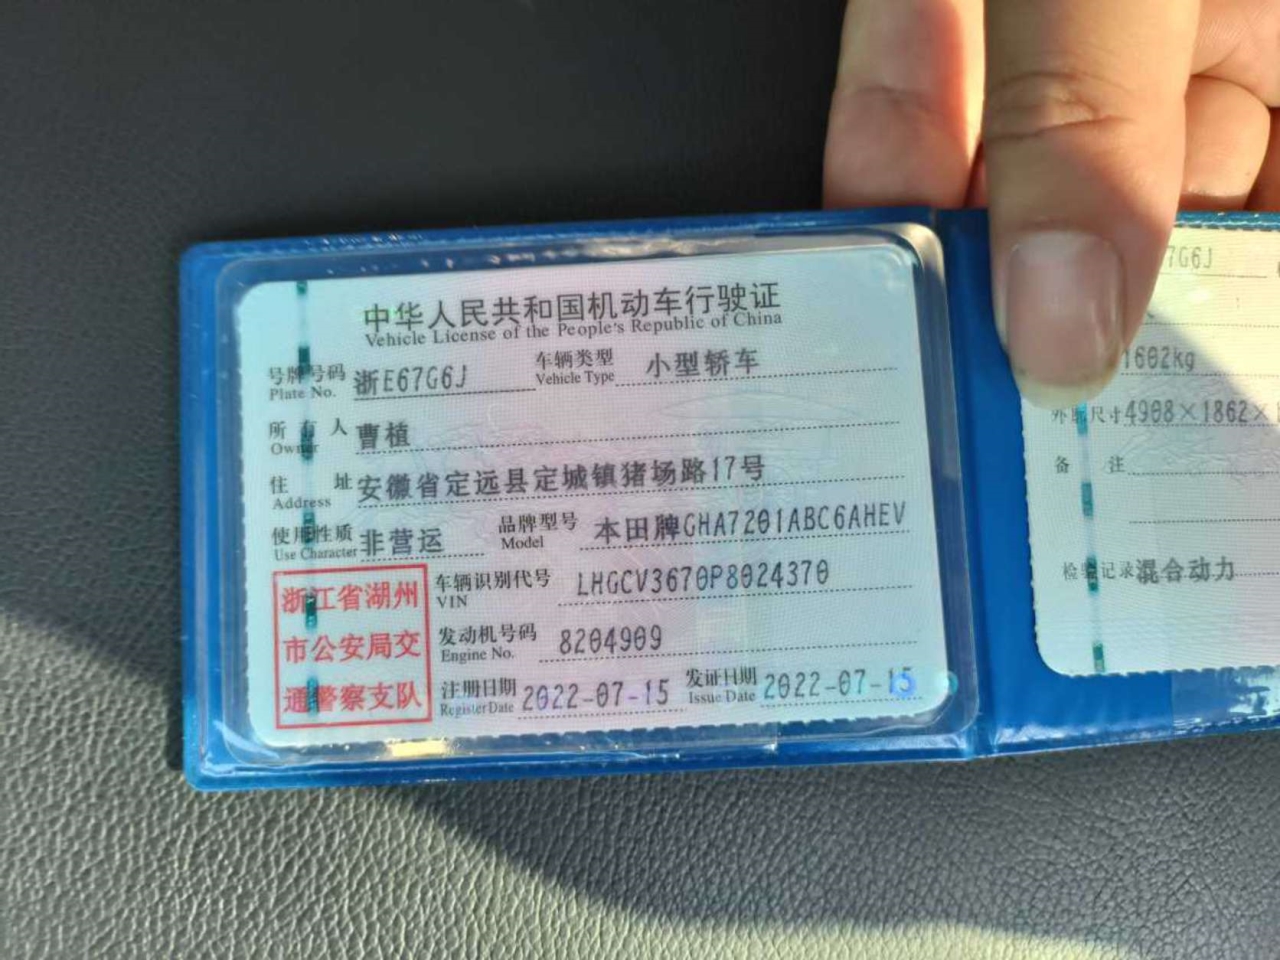 中华人民共和国机动车行驶证
Vehicle License of the People's Republic of China
号牌号码 浙E67G6J 车辆类型 小型轿车
Plate No. Vehicle Type
所有人 曹植
Owner
住址 安徽省定远县定城镇猪场路17号
Address
使用性质 非营运 品牌型号 本田牌GHA7201ABC6AHEV
Use Character Model
浙江省湖州
市公安局交
通警察支队
车辆识别代号 LHGCV3670P8024370
VIN
发动机号码 8204909
Engine No.
注册日期 2022-07-15 发证日期 2022-07-15
Register Date Issue Date
7G6J
1602kg
外廓尺寸 4908×1862×
备注
检验记录 混合动力